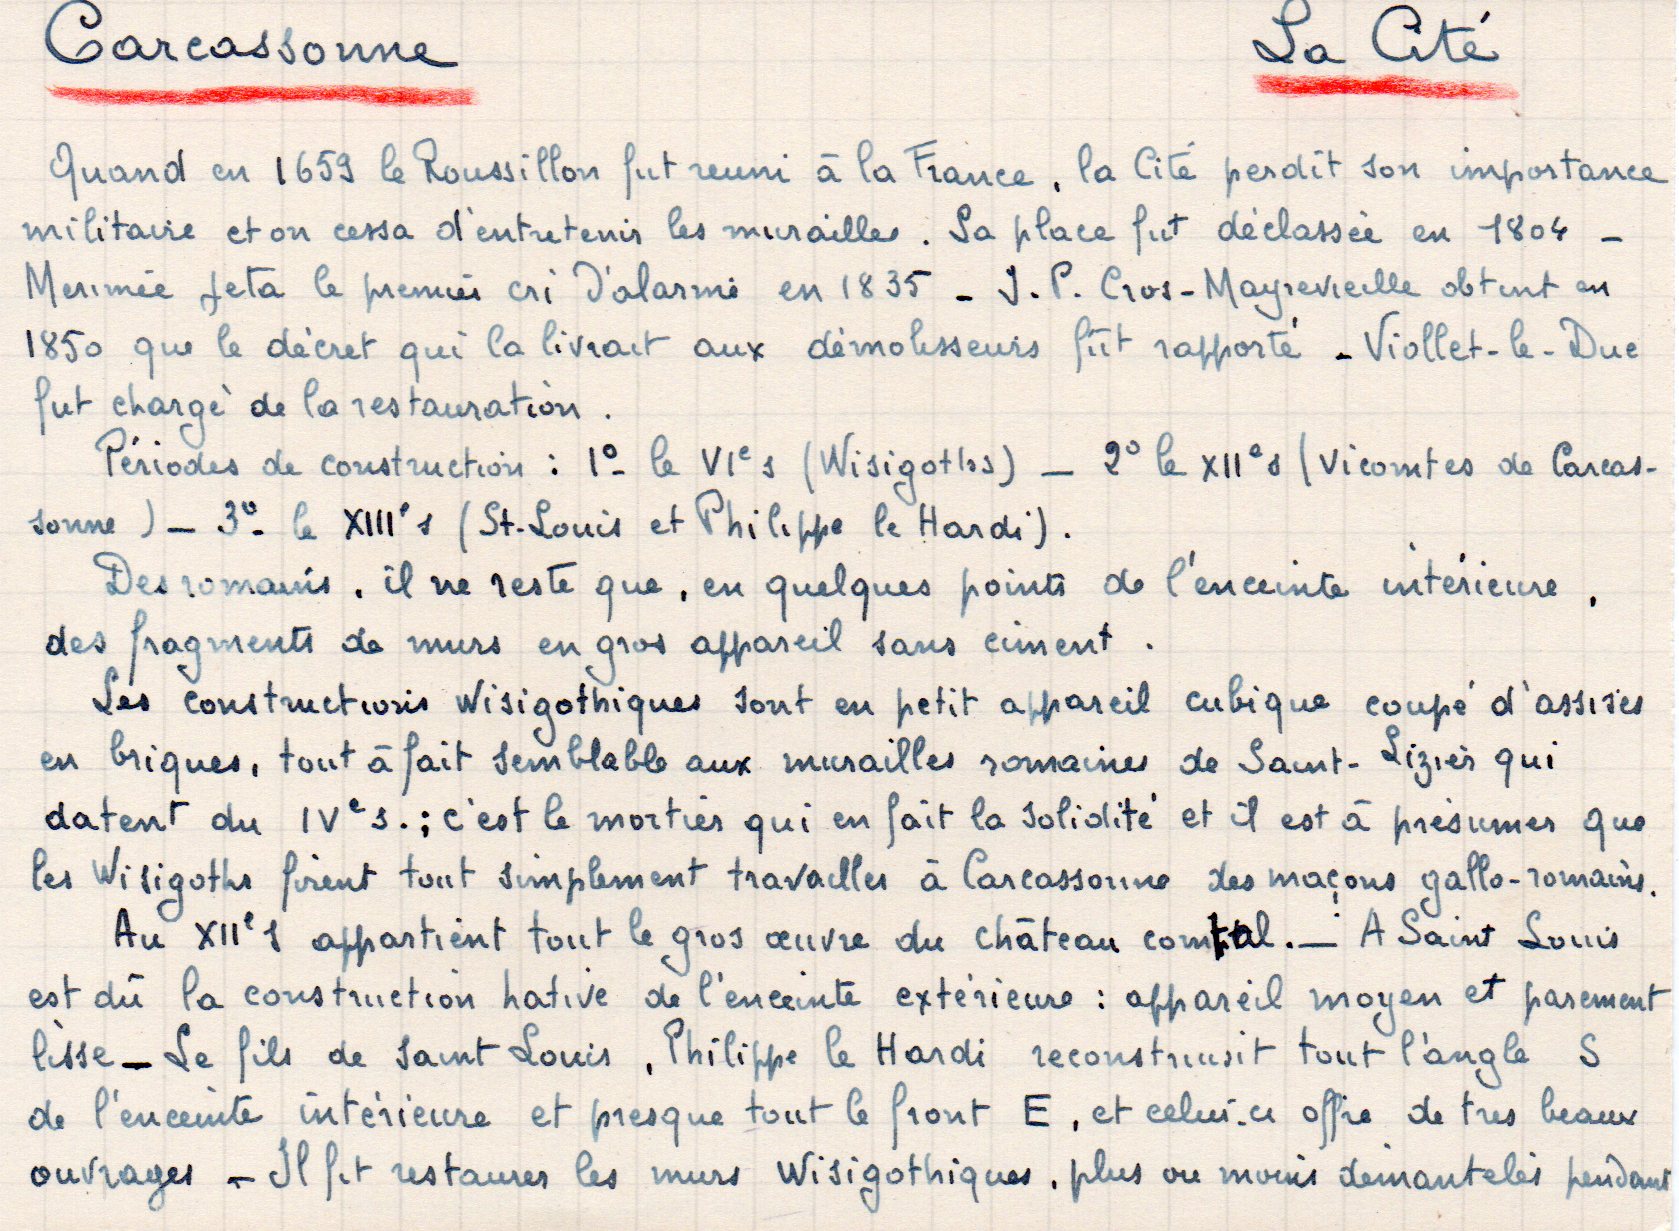 Carcassonne La Cité
Quand en 1659 le Roussillon fut reuni à la France, la Cité perdit son importance
militaire et on cessa d'entretenir les murailles. Sa place fut déclassée en 1804 -
Merimée jeta le premier cri d'alarme en 1835 - J. P. Cros-Mayrevieille obtint en
1850 que le décret qui la livrait aux démolisseurs fût rapporté - Viollet-le-Duc
fut chargé de la restauration.
Périodes de construction : 1°- le VIe s (Wisigoths) - 2° le XIIe s (Vicomtes de Carcas-
sonne) - 3°- le XIIIe s (St-Louis et Philippe le Hardi).
Des romains, il ne reste que, en quelques points de l'enceinte intérieure,
des fragments de murs en gros appareil sans ciment.
Les constructions Wisigothiques sont en petit appareil cubique coupé d'assises
en briques, tout à fait semblable aux murailles romaines de Saint-Lizier qui
datent du IVe s. ; c'est le mortier qui en fait la solidité et il est à présumer que
les Wisigoths firent tout simplement travailler à Carcassonne des maçons gallo-romains.
Au XIIe s appartient tout le gros œuvre du château comtal. - A Saint Louis
est dû la construction hative de l'enceinte extérieure : appareil moyen et parement
lisse - Le fils de Saint Louis, Philippe le Hardi reconstruisit tout l'angle S
de l'enceinte intérieure et presque tout le front E, et celui-ci offre de tres beaux
ouvrages - Il fit restaurer les murs Wisigothiques, plus ou moins démantelés pendant